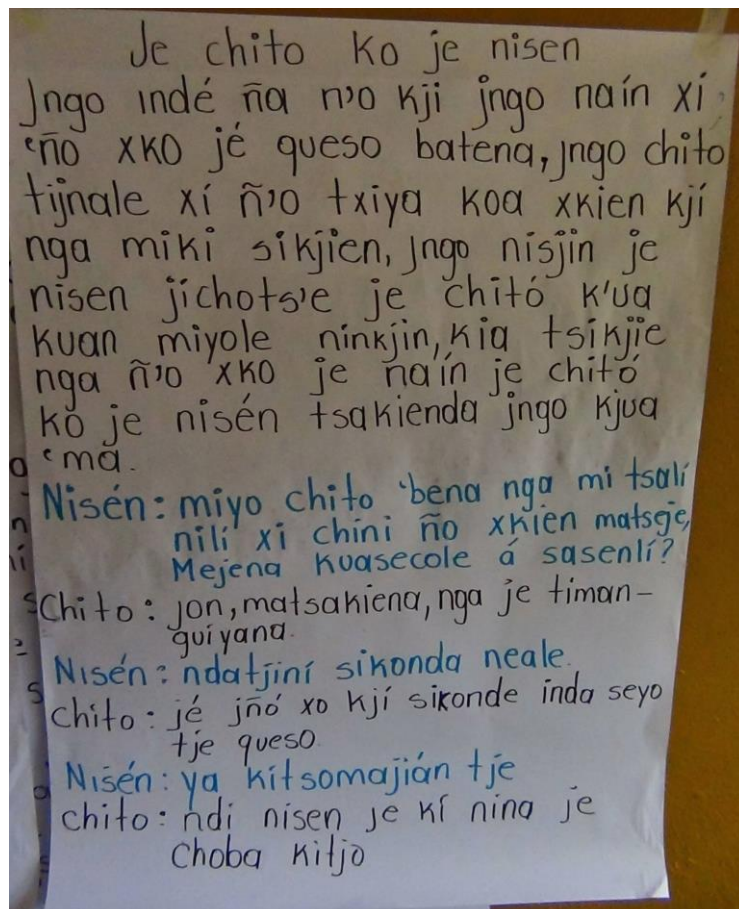 Je chito ko je nisen
Jngo indé ña n'o kji jngo naín xí
'ño xko jé queso batena, jngo chito
tijnale xí ñ'o txiya koa xkien kjí
nga miki sikjien, jngo nisjin je
nisen jichots'e je chitó k'ua
kuan miyole ninkjin, kia tsikjie
nga ñ'o xko je naín je chitó
ko je nisén tsakienda jngo kjua
'ma.
Nisén: miyo chito 'bena nga mi tsalí
nilí xi chini ño xkien matseje,
Mejena kuasecole á sasenlí?
Chito: jon, matsakiena, nga je timan-
guiyana.
Nisén: ndatjiní sikonda neale.
chito: jé jñó xo kjí sikonde inda seyo
tje queso.
Nisén: ya kitsomajián tje
chito: ndi nisen je kí nina je
choba kitjo